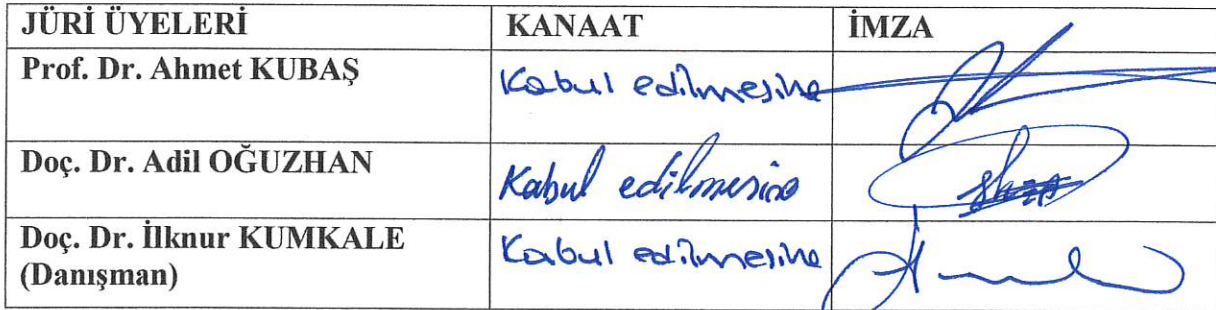 JÜRİ ÜYELERİ KANAAT İMZA
Prof. Dr. Ahmet KUBAŞ Kabul edilmesine
Doç. Dr. Adil OĞUZHAN Kabul edilmesine
Doç. Dr. İlknur KUMKALE Kabul edilmesine
(Danışman)